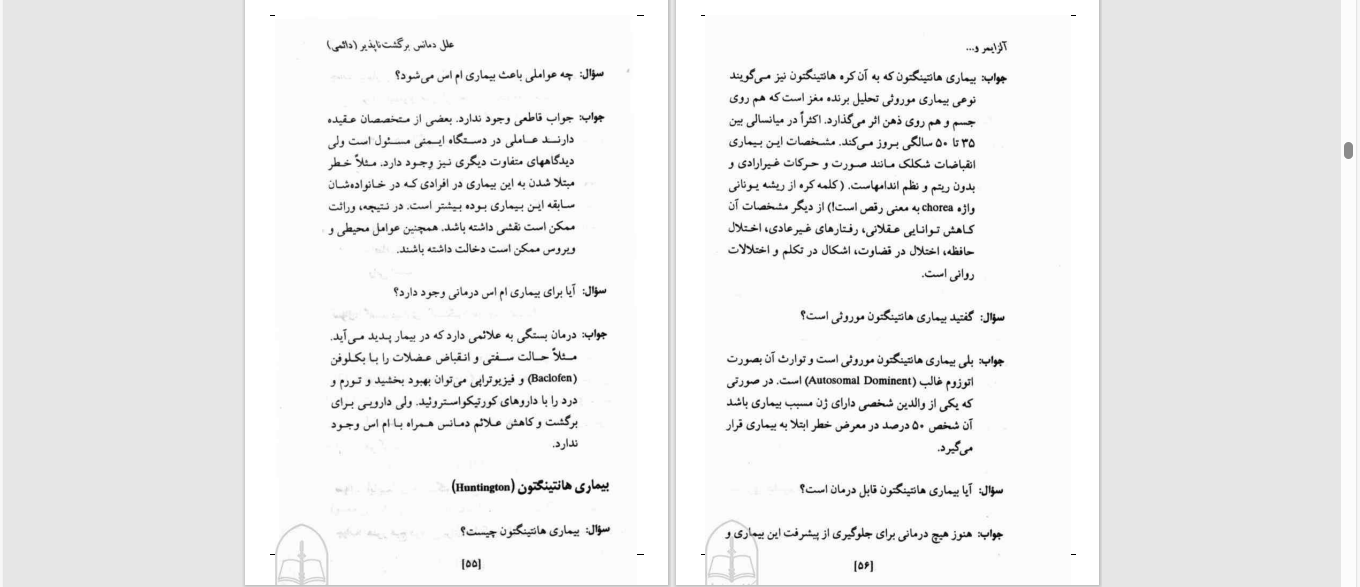 علل دمانس برگشت‌ناپذیر (دائمی)
سؤال: چه عواملی باعث بیماری ام اس می‌شود؟
جواب: جواب قاطعی وجود ندارد. بعضی از متخصصان عقیده
دارند عاملی در دستگاه ایمنی مسئول است ولی
دیدگاههای متفاوت دیگری نیز وجود دارد. مثلاً خطر
مبتلا شدن به این بیماری در افرادی که در خانواده‌شان
سابقه این بیماری بوده بیشتر است. در نتیجه، وراثت
ممکن است نقشی داشته باشد. همچنین عوامل محیطی و
ویروس ممکن است دخالت داشته باشند.
سؤال: آیا برای بیماری ام اس درمانی وجود دارد؟
جواب: درمان بستگی به علائمی دارد که در بیمار پدید می‌آید.
مثلاً حالت سفتی و انقباض عضلات را با بکلوفن
(Baclofen) و فیزیوتراپی می‌توان بهبود بخشید و تورم و
درد را با داروهای کورتیکواستروئید. ولی دارویی برای
برگشت و کاهش علائم دمانس همراه با ام اس وجود
ندارد.
بیماری هانتینگتون (Huntington)
سؤال: بیماری هانتینگتون چیست؟
[۵۵]
آلزایمر و...
جواب: بیماری هانتینگتون که به آن کره هانتینگتون نیز می‌گویند
نوعی بیماری موروثی تحلیل برنده مغز است که هم روی
جسم و هم روی ذهن اثر می‌گذارد. اکثراً در میانسالی بین
۳۵ تا ۵۰ سالگی بروز می‌کند. مشخصات این بیماری
انقباضات شکلک مانند صورت و حرکات غیرارادی و
بدون ریتم و نظم اندامهاست. (کلمه کره از ریشه یونانی
واژه chorea به معنی رقص است!) از دیگر مشخصات آن
کاهش توانایی عقلانی، رفتارهای غیرعادی، اختلال
حافظه، اختلال در قضاوت، اشکال در تکلم و اختلالات
روانی است.
سؤال: گفتید بیماری هانتینگتون موروثی است؟
جواب: بلی بیماری هانتینگتون موروثی است و توارث آن بصورت
اتوزوم غالب (Autosomal Dominent) است. در صورتی
که یکی از والدین شخصی دارای ژن مسبب بیماری باشد
آن شخص ۵۰ درصد در معرض خطر ابتلا به بیماری قرار
می‌گیرد.
سؤال: آیا بیماری هانتینگتون قابل درمان است؟
جواب: هنوز هیچ درمانی برای جلوگیری از پیشرفت این بیماری و
[۵۶]